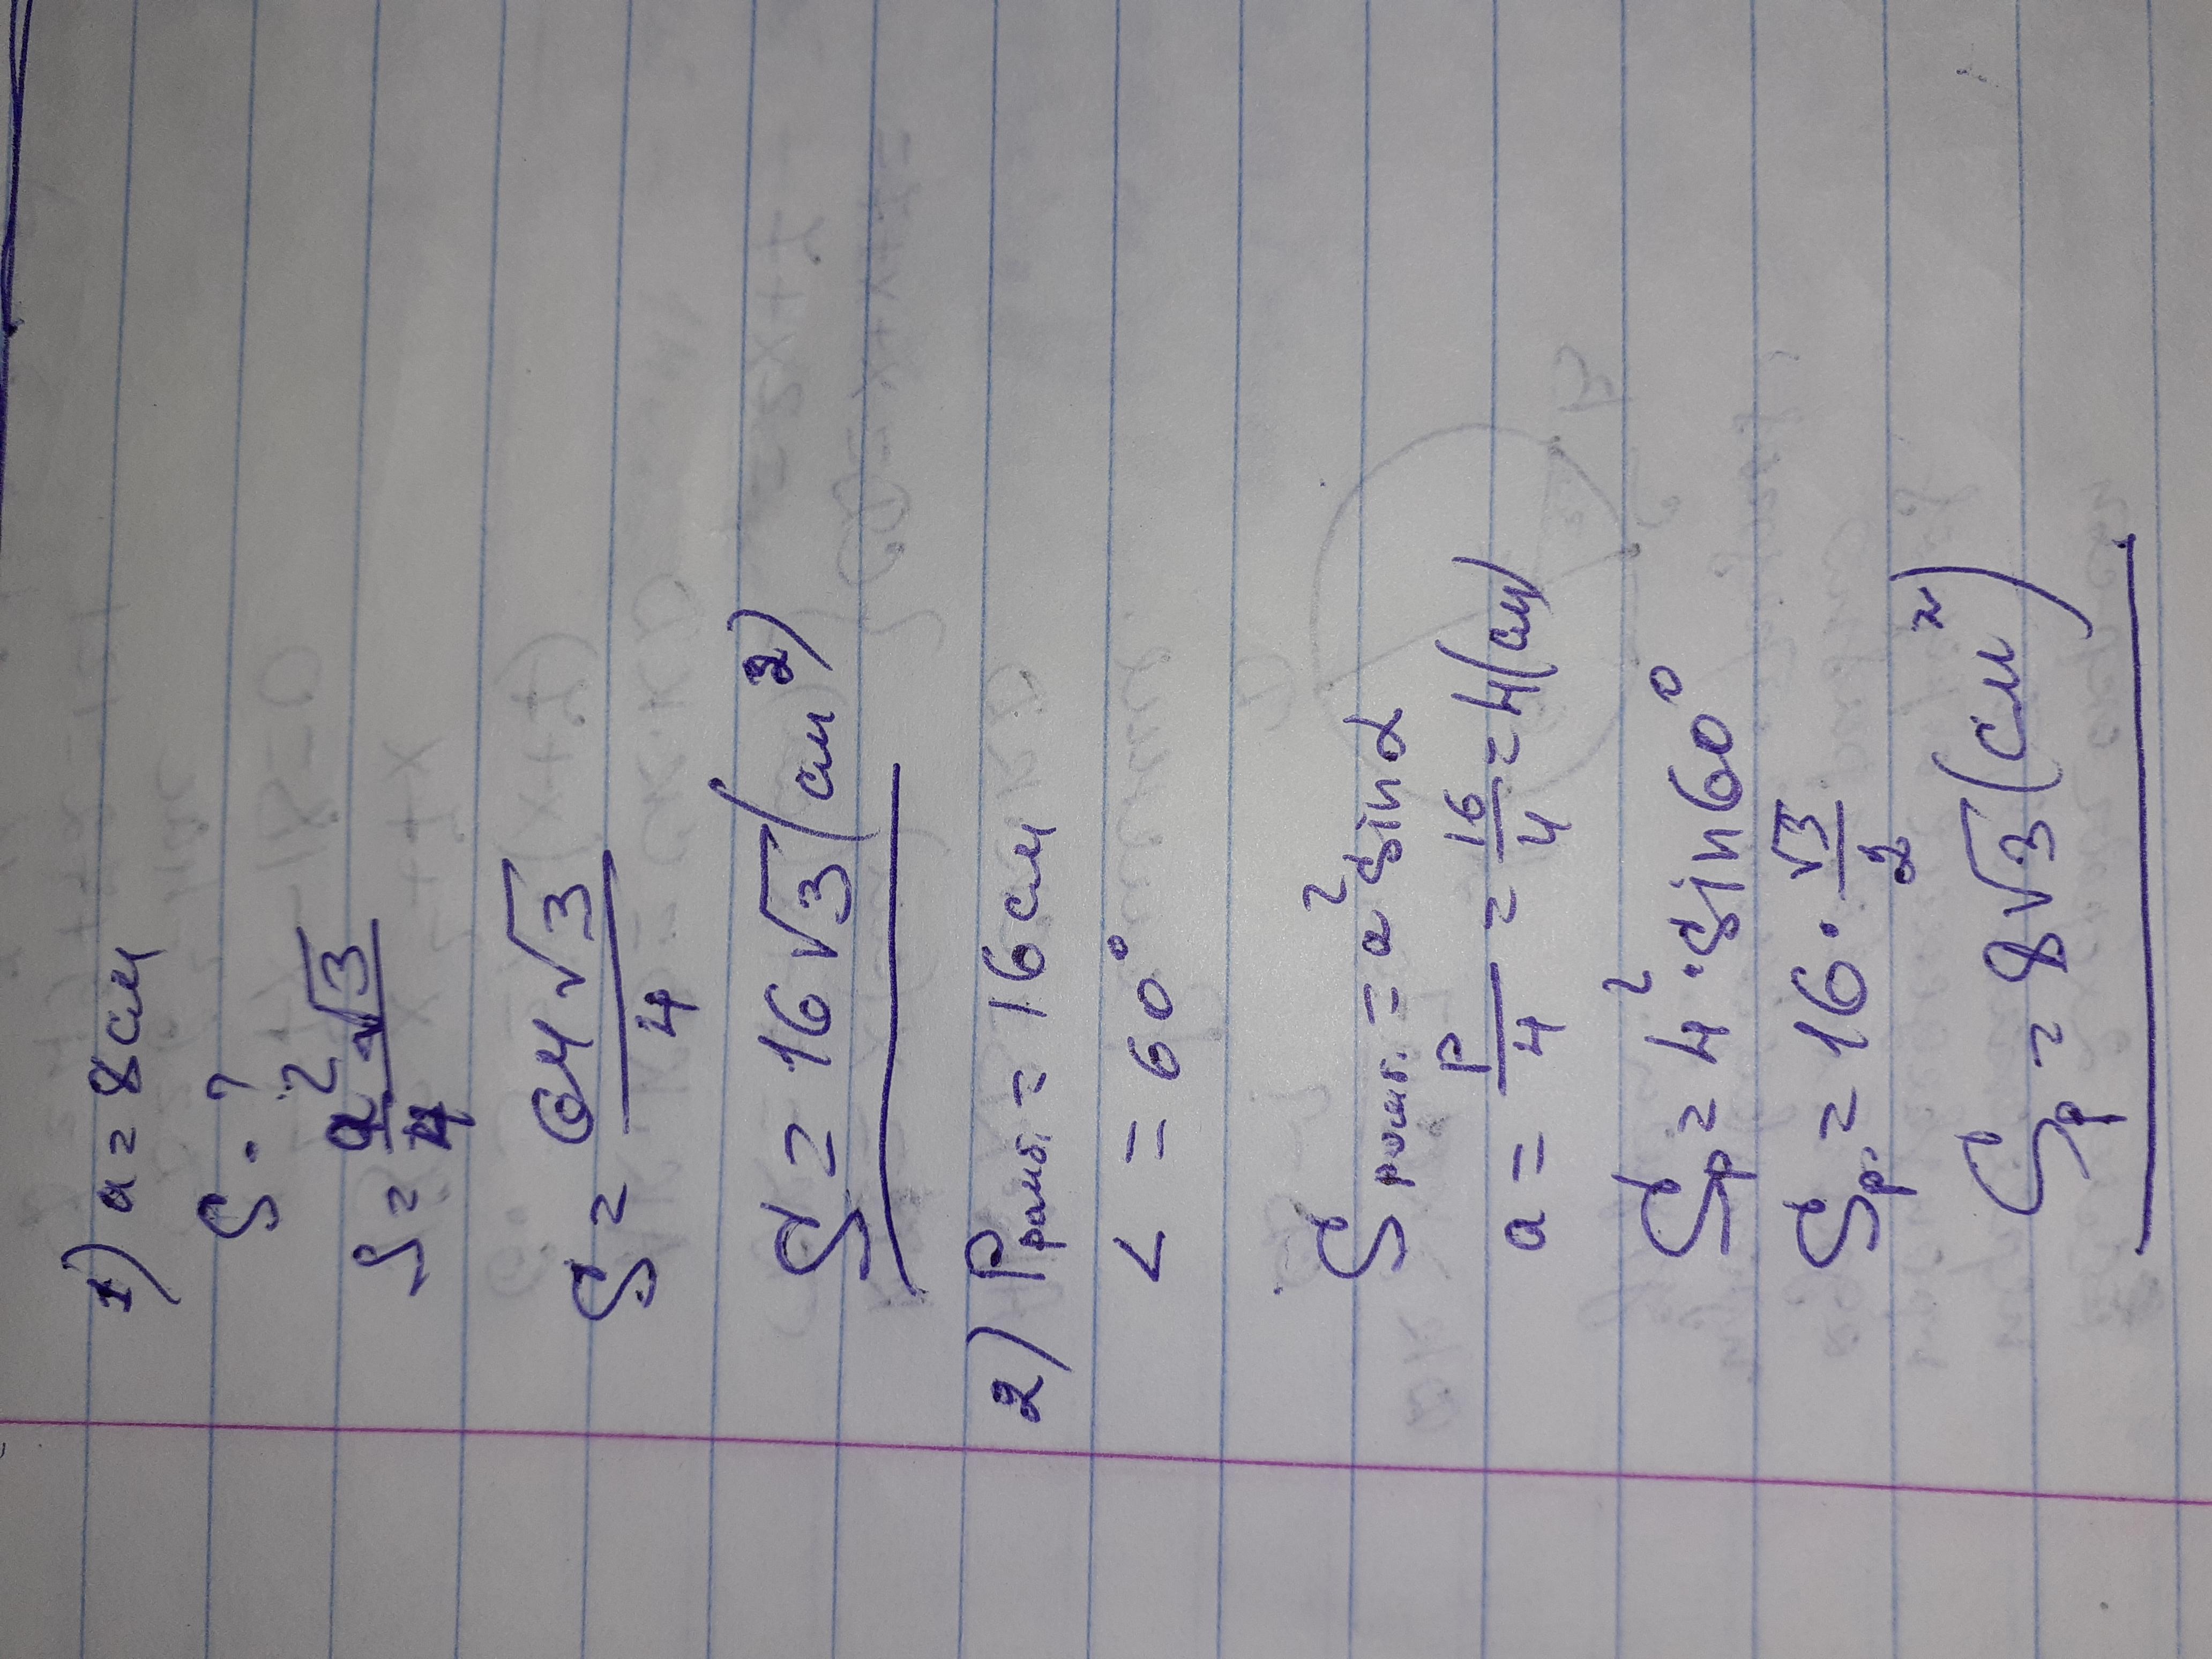 1) a = 8 см
S · ?
S = a²√3 / 4
S = 64√3 / 4
S = 16√3 (см²)
2) Pромб. = 16 см
< = 60°
Sромб. = a² sin α
a = P/4 = 16/4 = 4 (см)
Sр = 4² · sin 60°
Sр. = 16 · √3/2
Sр = 8√3 (см²)